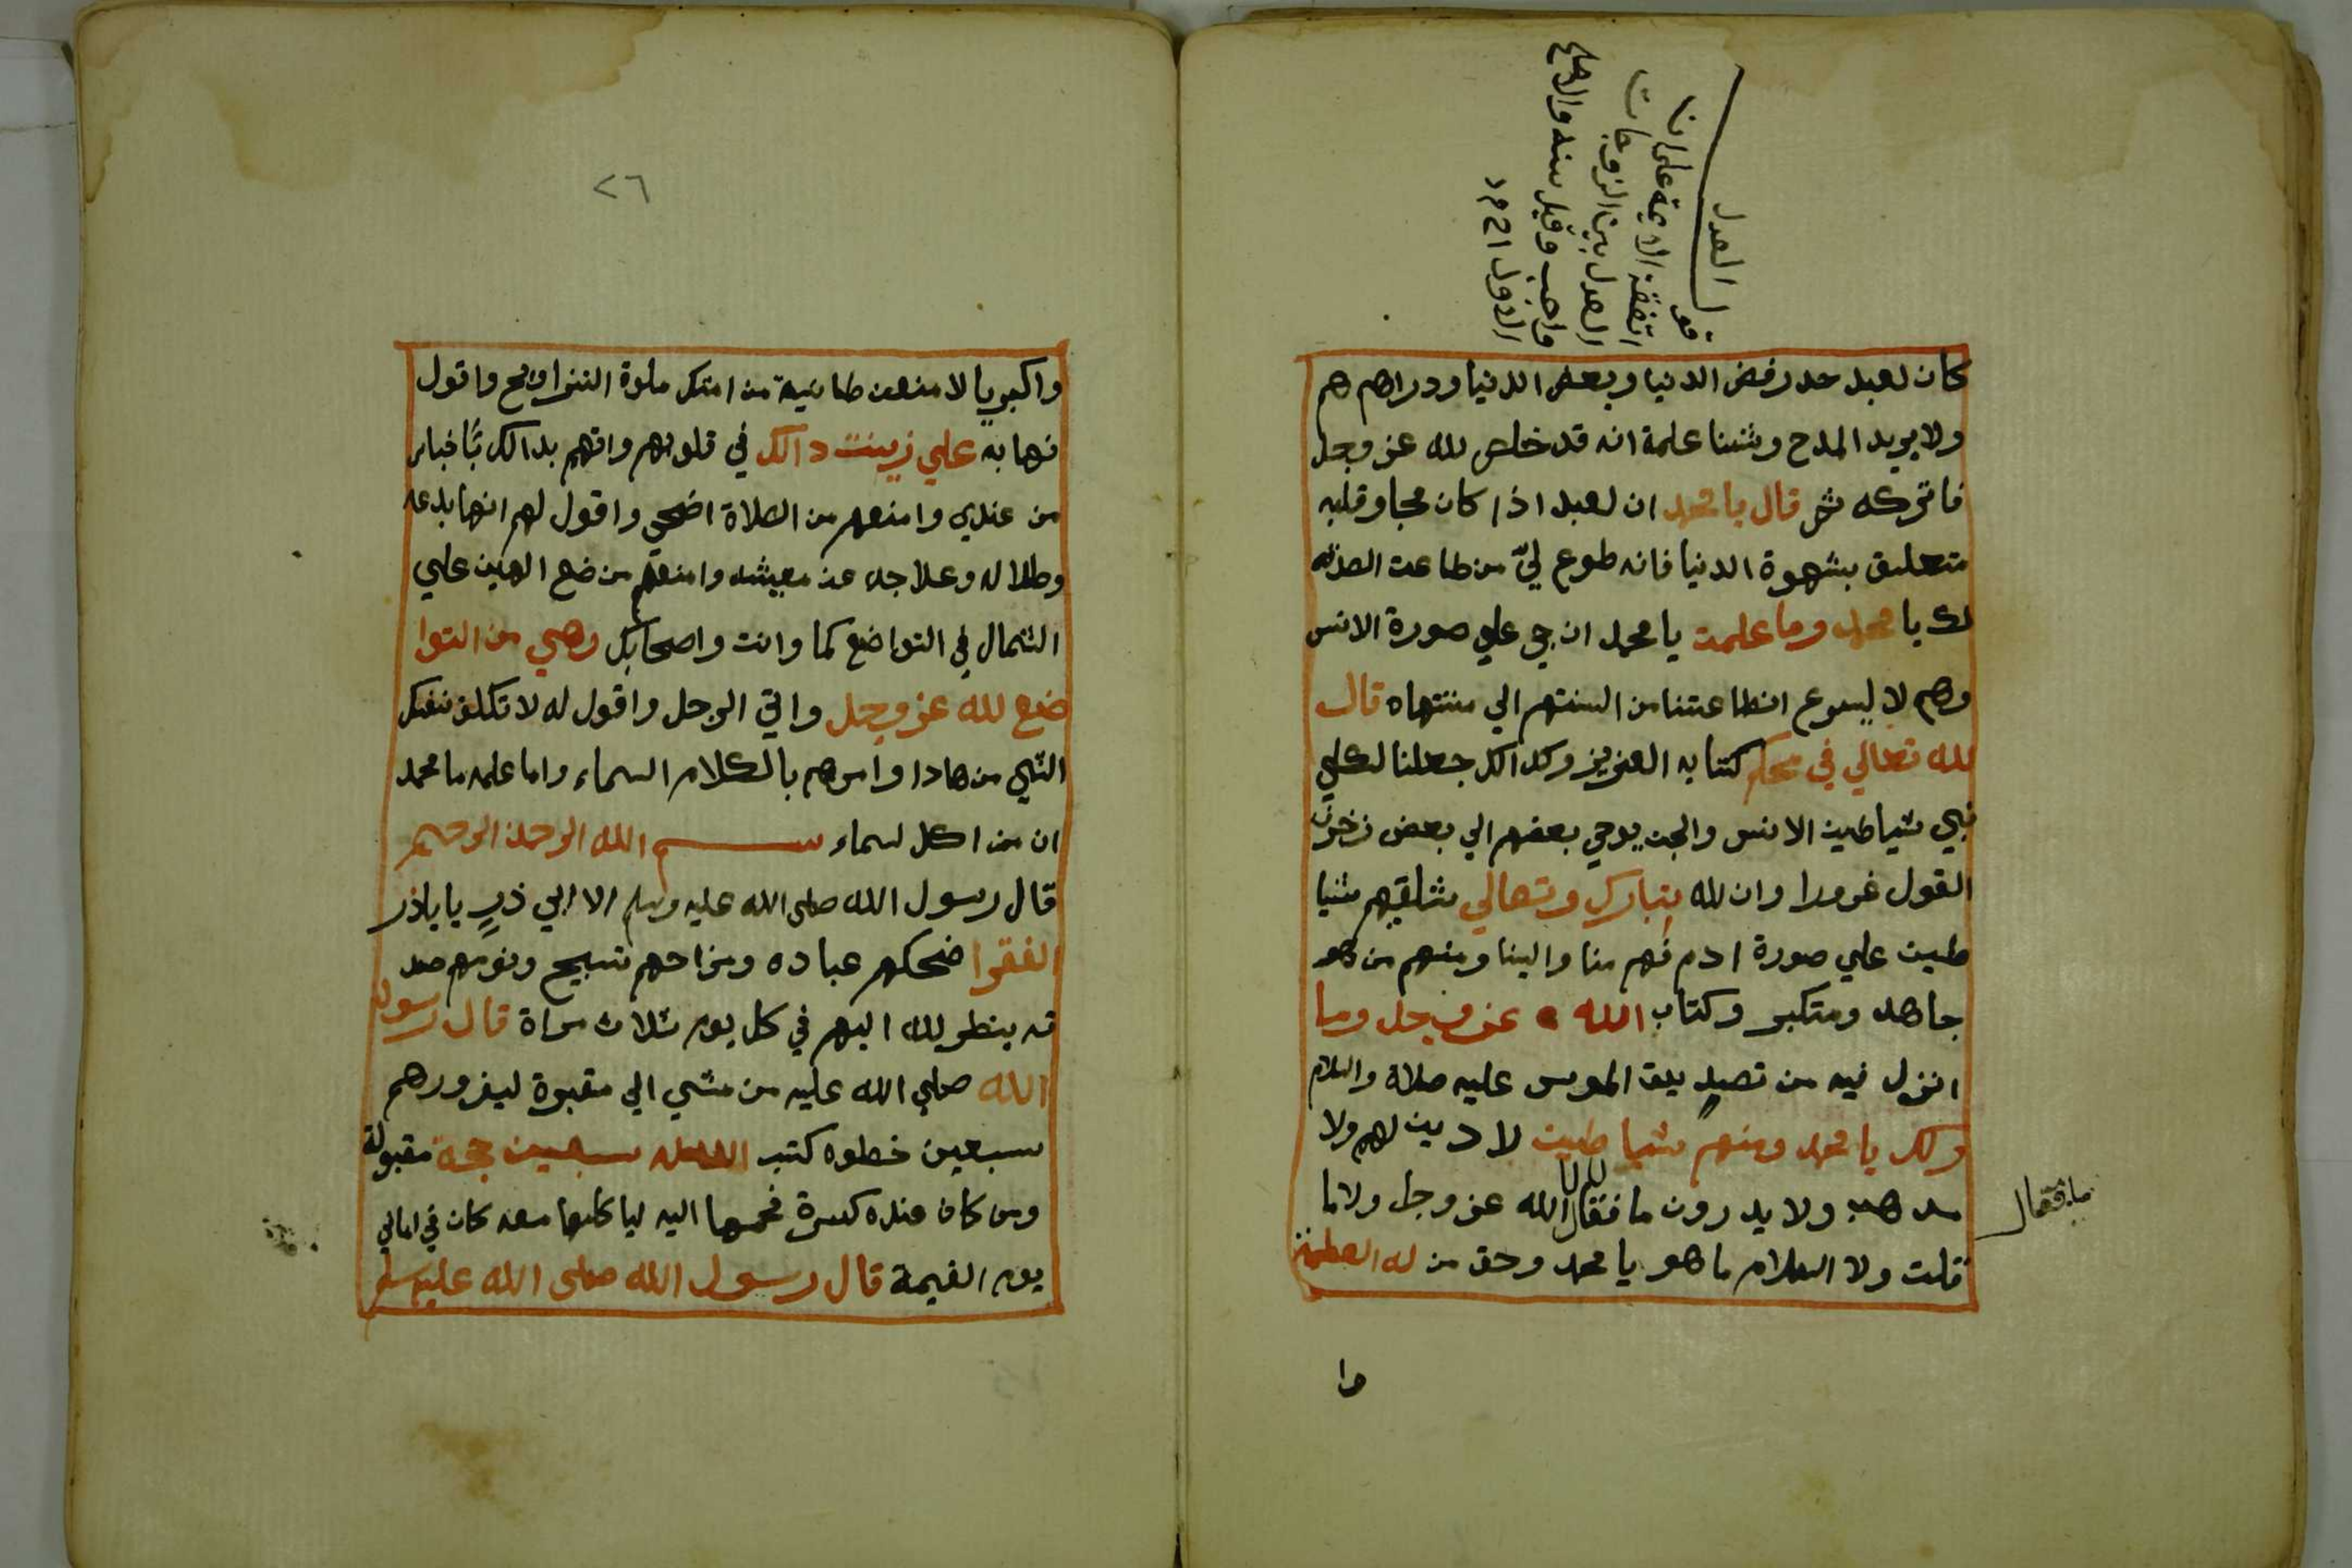 العدل
قو
اتفقة الايمة على انا
العدل بين الزوجات
واجب وقيل سنه والاصح
الاول ١٥٢١
كان لعبد حد رفض الدنيا وبعض الدنيا ودراهم هم
ولا يريد المدح وثننا علمة انه قد خلص لله عز وجل
فاتركه ثم قال يا محمد ان لعبد اذا كان محبا وقلبه
متعلىق بشهوة الدنيا فانه طوع ليّ من طاعت
لك يا محمد وما علمت يا محمد ان جى علي صورة الانس
وهم لا ليسوع انطاعتنا من السنتهم الي منتهاه قال
لله تعالي في محكم كتابه العزيز وكدالك جعلنا لكلي
نبي شياطين الانس والجن يوحي بعضهم الي بعض زخرف
القول غرورا وان لله يتبارك وتعالي شلقيهم شيا
طين علي صورة ادم فهم منا والينا ومنهم من هو
جاهد ومتكبر وكتاب الله عز وجل وما
انزل فيه من تصديق المرس عليه صلاة والسلام
وكلك يا محمد ومنهم شيا طين لا دين لهم ولا
مدهب ولا يدرون ما فقال الله عز وجل ولا ما
ما فقال
قلت ولا السلام ما هو يا محمد وحق من له العظمة
وا
٢٦
واكبريا لا منعن طانية من امتك ملوة النزاويح واقول
نهابه علي زينت دالك في قلوبهم واتهم بدالك بأخبار
من عندي وامنعهم من الصلاة اضحي واقول لهم انها بدعه
وطلاله وعلاجه عن معيشه وامنعهم من ضع اليمين علي
الشمال في التواضع كما وانت واصحابك وهي من التوا
ضع لله عز وجل واتي الرجل واقول له لا تكلف نفك
النبي من هادا وامرهم بالكلام السماء واما علمه ما محمد
ان من اكل لسماء بسم الله الرحمن الرحيم
قال رسول الله صلى الله عليه وسلم الا ابي ذر ياباذر
الفقرا ضحكهم عباده ومزاحهم تسبيح ونومهم صد
قه ينظر لله اليهم في كل يوم ثلاث مراة قال رسول
الله صلي الله عليه من مشي الي مقبرة ليفرورهم
سبعين خطوه كتب الله له سبعين حجة مقبولة
ومن كان عنده كسرة فحمها اليه لياكلها معه كان في امالي
يوم القيمة قال رسول الله صلى الله عليه وسلم